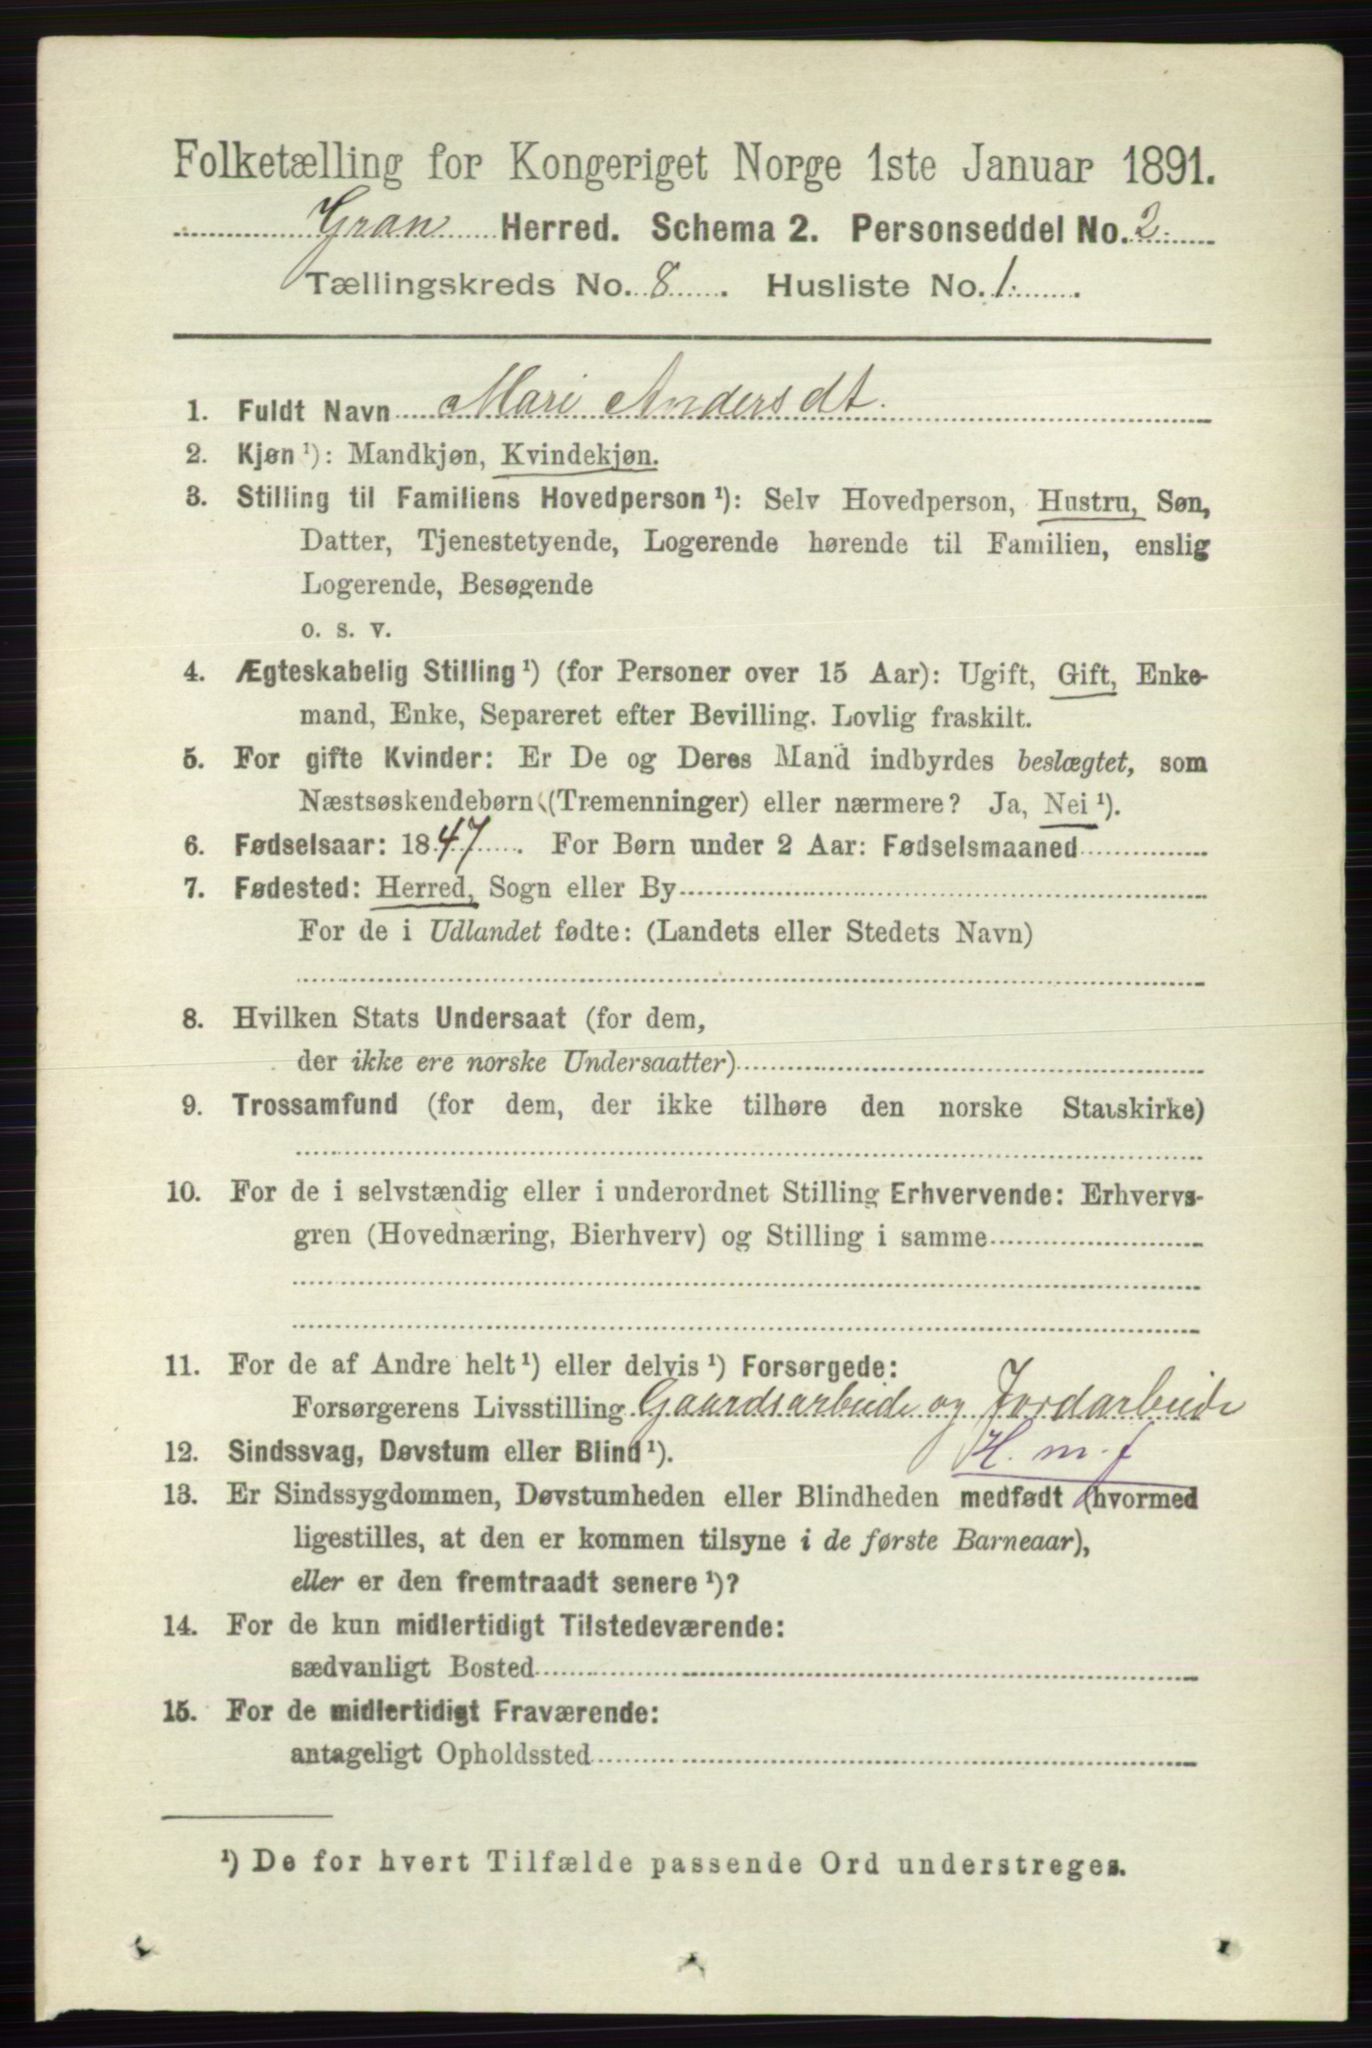 Folketælling for Kongeriget Norge 1ste Januar 1891.
Gran Herred. Schema 2. Personseddel No. 2.
Tællingskreds No. 8. Husliste No. 1.
1. Fuldt Navn Mari Andersdt.
2. Kjøn ¹): Mandkjøn, Kvindekjøn.
3. Stilling til Familiens Hovedperson ¹): Selv Hovedperson, Hustru, Søn,
Datter, Tjenestetyende, Logerende hørende til Familien, enslig
Logerende, Besøgende
o. s. v.
4. Ægteskabelig Stilling ¹) (for Personer over 15 Aar): Ugift, Gift, Enke-
mand, Enke, Separeret efter Bevilling. Lovlig fraskilt.
5. For gifte Kvinder: Er De og Deres Mand indbyrdes beslægtet, som
Næstsøskendebørn (Tremenninger) eller nærmere? Ja, Nei ¹).
6. Fødselsaar: 1847. For Børn under 2 Aar: Fødselsmaaned
7. Fødested: Herred, Sogn eller By
For de i Udlandet fødte: (Landets eller Stedets Navn)
8. Hvilken Stats Undersaat (for dem,
der ikke ere norske Undersaatter)
9. Trossamfund (for dem, der ikke tilhøre den norske Statskirke)
10. For de i selvstændig eller i underordnet Stilling Erhvervende: Erhvervs-
gren (Hovednæring, Bierhverv) og Stilling i samme
11. For de af Andre helt ¹) eller delvis ¹) Forsørgede:
Forsørgerens Livsstilling Gaardsarbeide og Jordarbeide
12. Sindssvag, Døvstum eller Blind ¹). H. m. f
13. Er Sindssygdommen, Døvstumheden eller Blindheden medfødt (hvormed
ligestilles, at den er kommen tilsyne i de første Barneaar),
eller er den fremtraadt senere ¹)?
14. For de kun midlertidigt Tilstedeværende:
sædvanligt Bosted
15. For de midlertidigt Fraværende:
antageligt Opholdssted
¹) De for hvert Tilfælde passende Ord understreges.